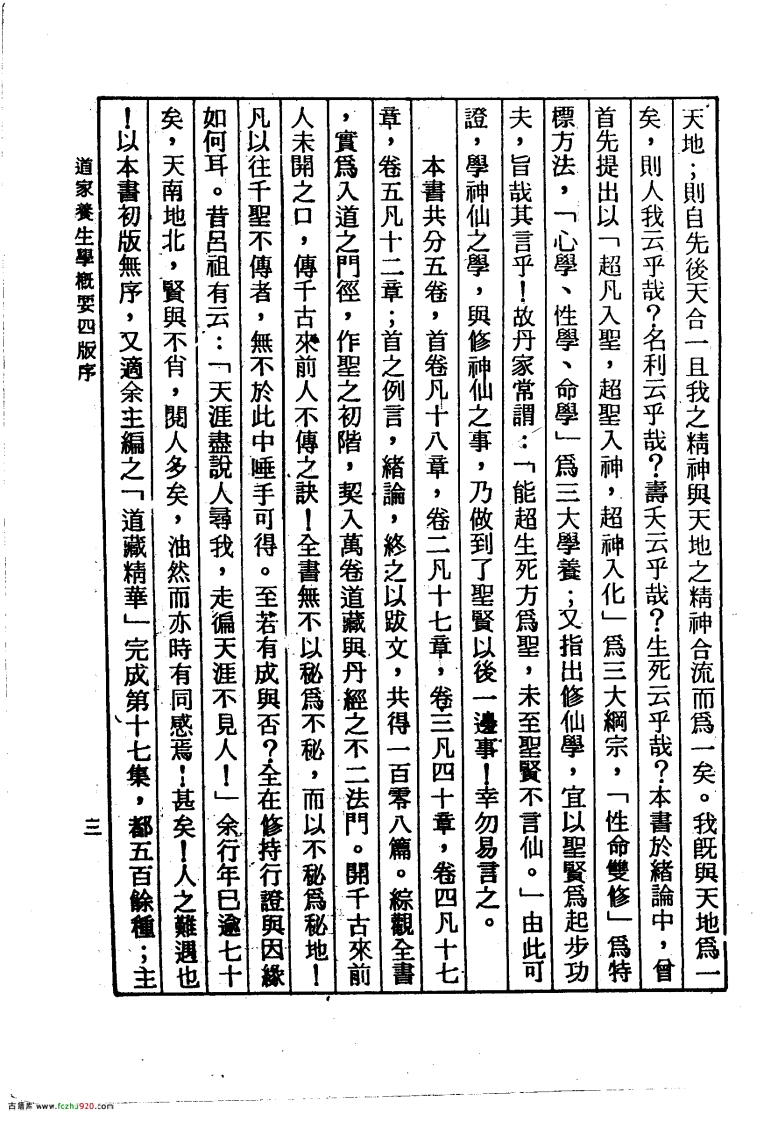 天地；則自先後天合一且我之精神與天地之精神合流而爲一矣。我旣與天地爲一
矣，則人我云乎哉？名利云乎哉？壽夭云乎哉？生死云乎哉？本書於緒論中，曾
首先提出以「超凡入聖，超聖入神，超神入化」爲三大綱宗，「性命雙修」爲特
標方法，「心學、性學、命學」爲三大學養；又指出修仙學，宜以聖賢爲起步功
夫，旨哉其言乎！故丹家常謂：「能超生死方爲聖，未至聖賢不言仙。」由此可
證，學神仙之學，與修神仙之事，乃做到了聖賢以後一邊事！幸勿易言之。
本書共分五卷，首卷凡十八章，卷二凡十七章，卷三凡四十章，卷四凡十七
章，卷五凡十二章；首之例言，緒論，終之以跋文，共得一百零八篇。綜觀全書
，實爲入道之門徑，作聖之初階，契入萬卷道藏與丹經之不二法門。開千古來前
人未開之口，傳千古來前人不傳之訣！全書無不以秘爲不秘，而以不秘爲秘地！
凡以往千聖不傳者，無不於此中唾手可得。至若有成與否？全在修持行證與因緣
如何耳。昔呂祖有云：「天涯盡說人尋我，走徧天涯不見人！」余行年已逾七十
矣，天南地北，賢與不肖，閱人多矣，油然而亦時有同感焉！甚矣！人之難遇也
！以本書初版無序，又適余主編之「道藏精華」完成第十七集，都五百餘種；主
道家養生學概要四版序
三
古籍库 www.fczhj920.com